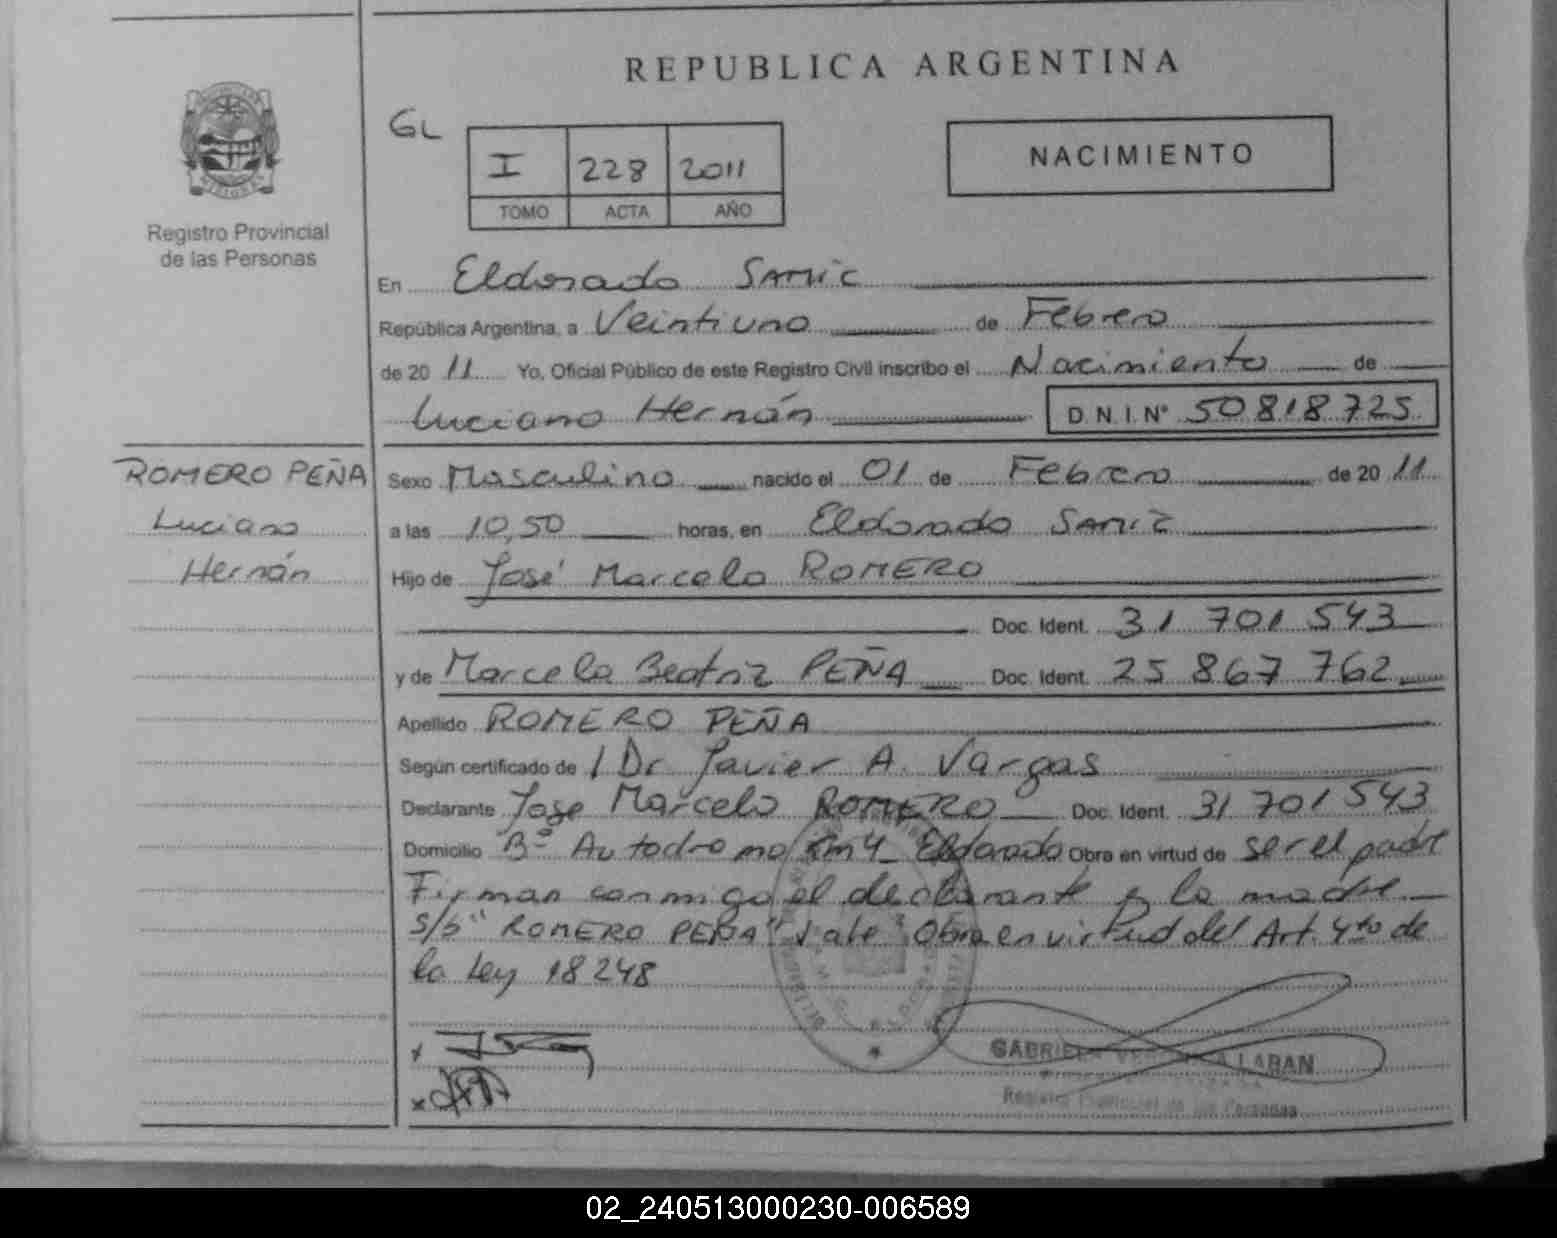 REPUBLICA ARGENTINA
GL
I 228 2011
TOMO ACTA AÑO
NACIMIENTO
Registro Provincial
de las Personas
En Eldorado SAMIC
República Argentina, a Veintiuno de Febrero
de 20 11 Yo, Oficial Público de este Registro Civil inscribo el Nacimiento de
Luciano Hernán D.N.I. Nº 50818725
ROMERO PEÑA
Luciano
Hernán
Sexo Masculino nacido el 01 de Febrero de 20 11
a las 10,50 horas, en Eldorado SAMIC
Hijo de José Marcelo ROMERO
Doc. Ident. 31 701 543
y de Marcela Beatriz PEÑA Doc. Ident. 25 867 762
Apellido ROMERO PEÑA
Según certificado de / Dr Javier A. Vargas
Declarante Jose Marcelo ROMERO Doc. Ident. 31 701 543
Domicilio Bº Autodromo km 4 Eldorado Obra en virtud de ser el padre
Firman conmigo el declarante y la madre
S/b "ROMERO PEÑA" Vale Obra en virtud del Art. 4to de
la Ley 18248
x
x
GABRIELA LABAN
Registro Provincial de las Personas
02_240513000230-006589